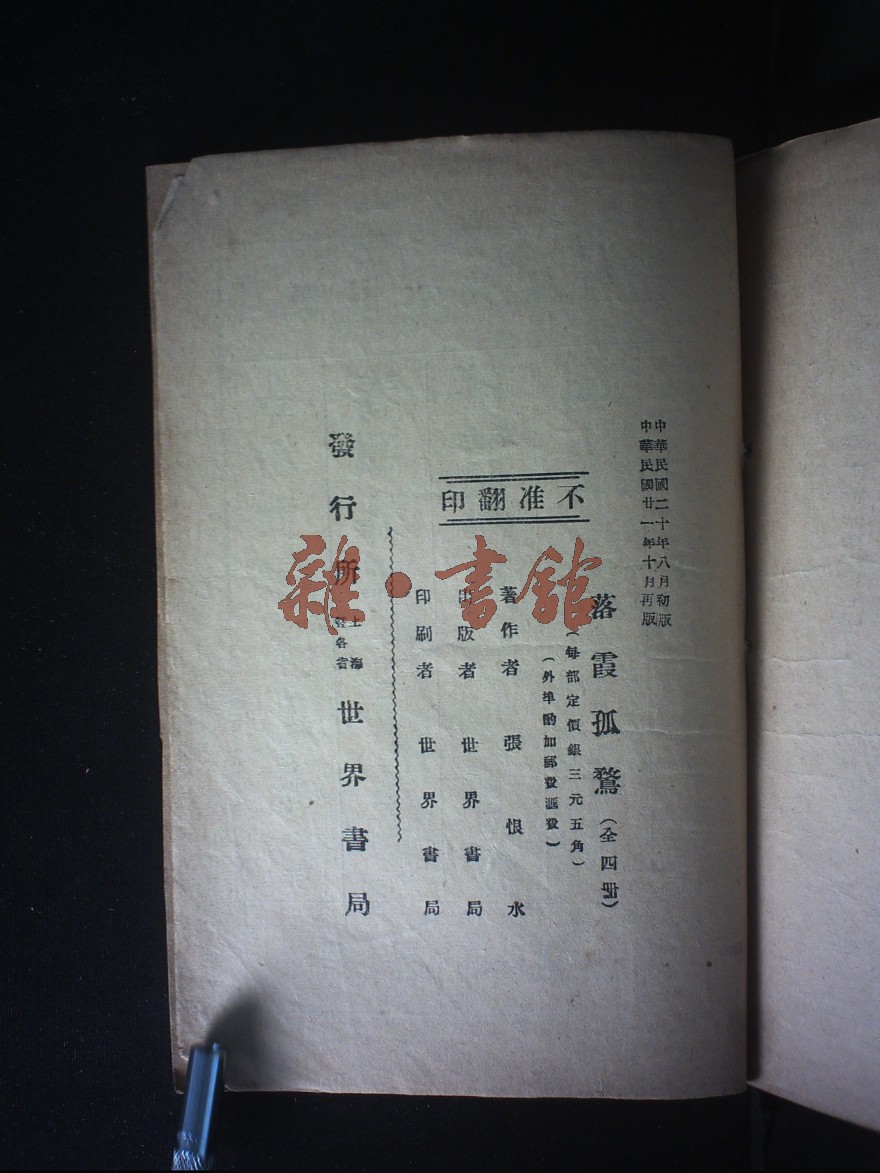 中華民國二十年八月初版
中華民國廿一年十月再版
落霞孤鶩（全四冊）
（每部定價銀三元五角）
（外埠酌加郵費滙費）
不准翻印
著作者 張恨水
出版者 世界書局
印刷者 世界書局
發行所 上海 各省 世界書局
雜·書館